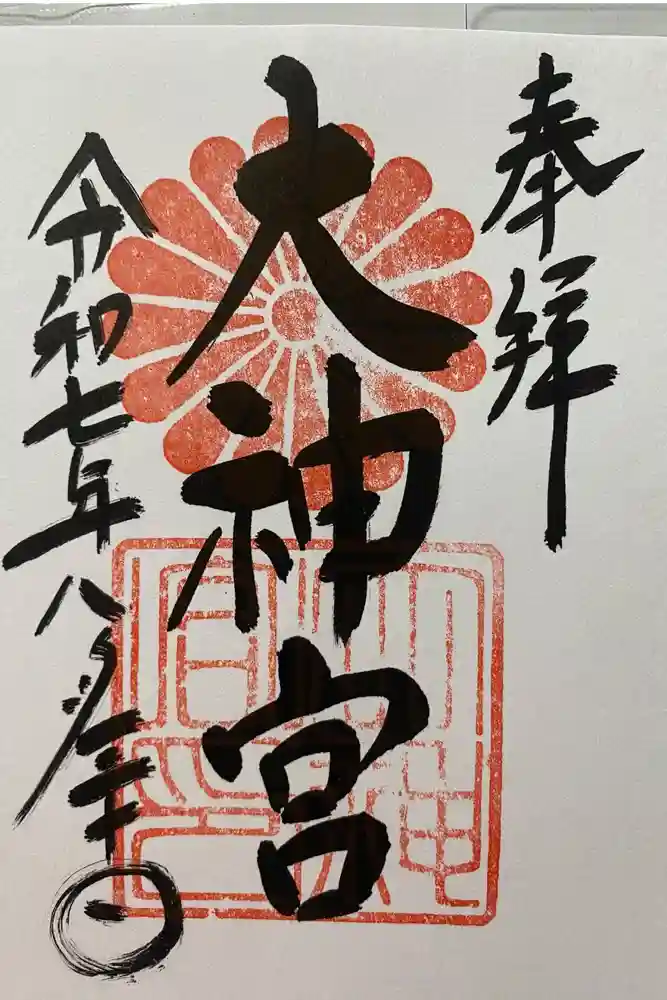 奉拝
大神宮
令和七年八月三十日